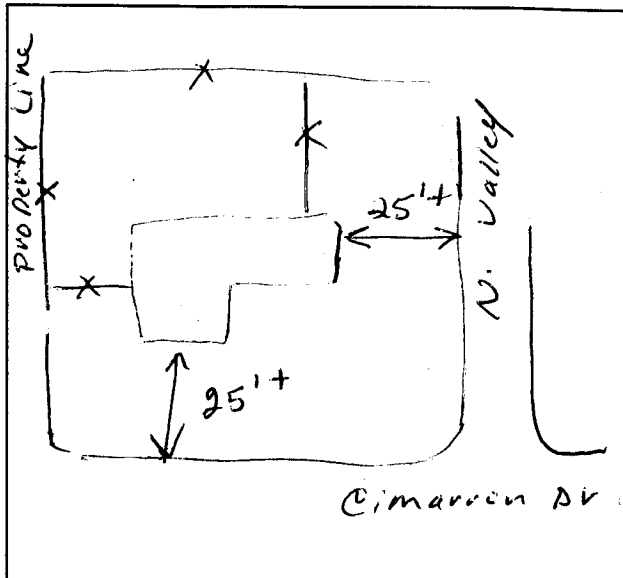 Property Line
25'+
N. Valley
25'+
Cimarron Dr.